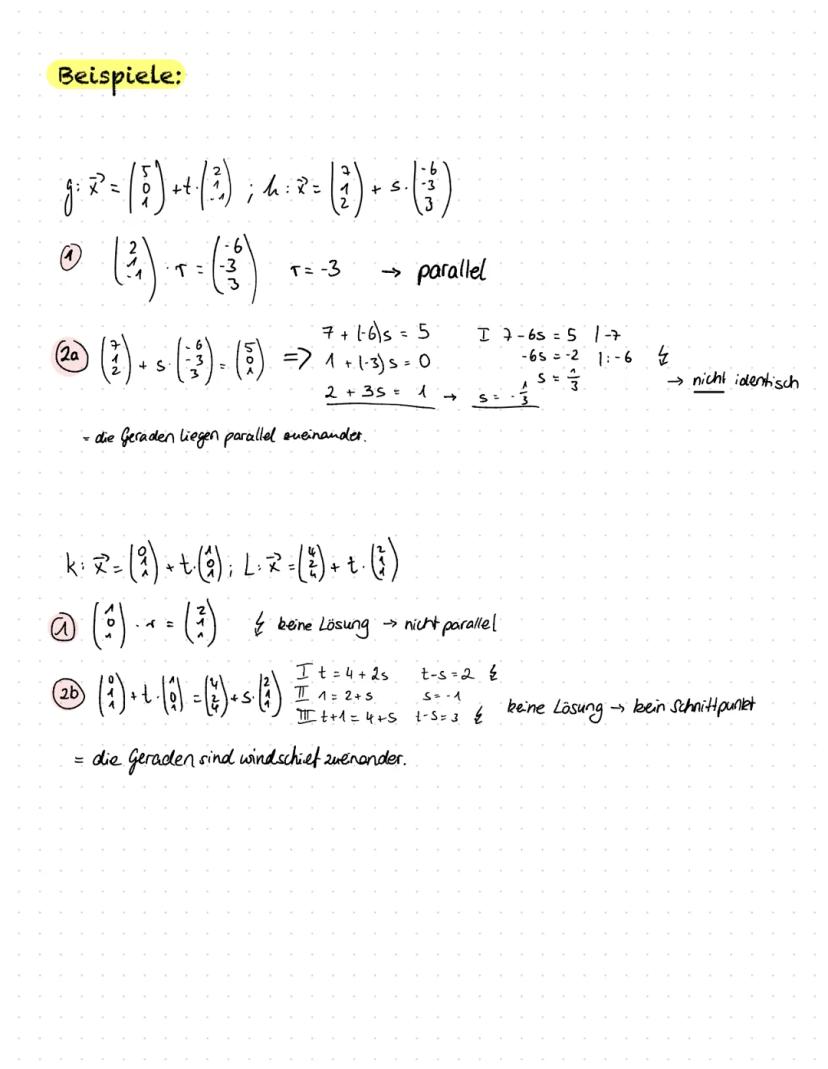 Beispiele:
g: x⃗ = (5 0 1) + t · (2 1 -1) ; h: x⃗ = (7 1 2) + s · (-6 -3 3)
① (2 1 -1) · r = (-6 -3 3) r = -3 → parallel
2a (7 1 2) + s · (-6 -3 3) = (5 0 1) =>
7 + (-6)s = 5
1 + (-3)s = 0
2 + 3s = 1 → s = -1/3
I 7 - 6s = 5 | -7
-6s = -2 | : -6 ↯
s = 1/3
→ nicht identisch
= die Geraden liegen parallel zueinander.
k: x⃗ = (0 1 1) + t · (1 0 1) ; L: x⃗ = (4 2 4) + t · (2 1 1)
① (1 0 1) · r = (2 1 1) ↯ keine Lösung → nicht parallel
2b (0 1 1) + t · (1 0 1) = (4 2 4) + s · (2 1 1)
I t = 4 + 2s t-s = 2 ↯
II 1 = 2 + s s = -1
III t+1 = 4+s t-s = 3 ↯
keine Lösung → kein Schnittpunkt
= die Geraden sind windschief zueinander.